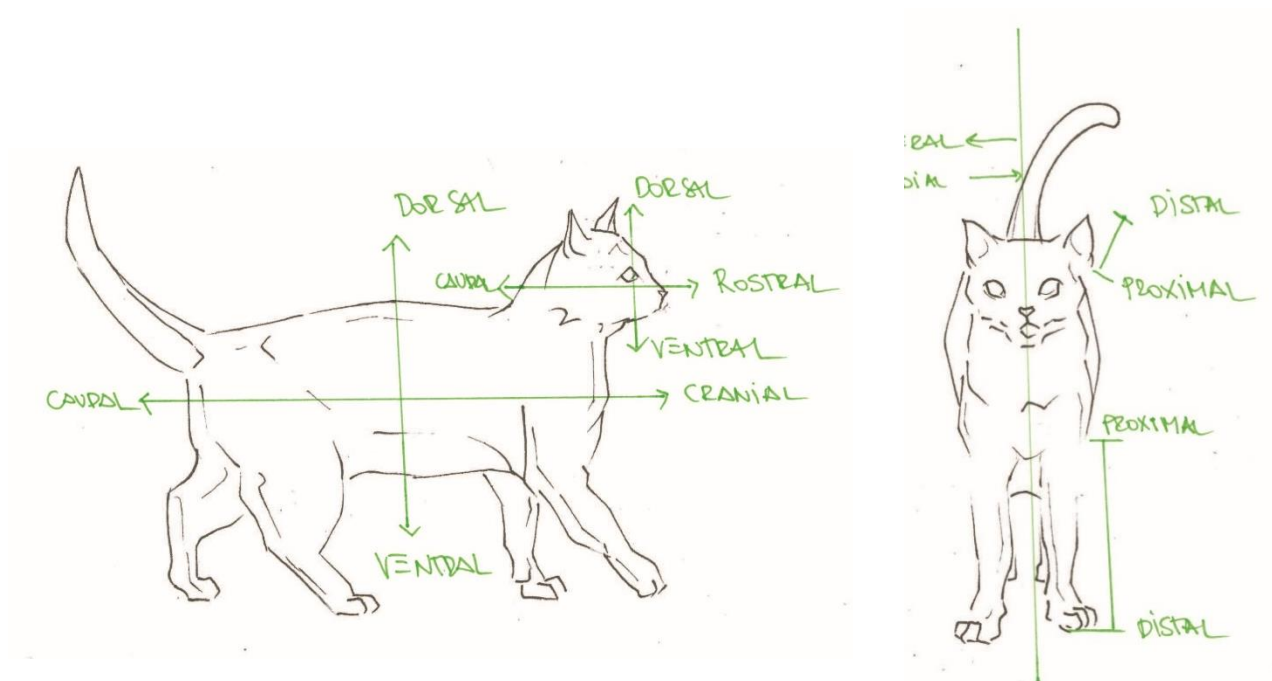 DORSAL
DORSAL
CAUDAL
ROSTRAL
VENTRAL
CAUDAL
CRANIAL
VENTRAL
ERAL
DIAL
DISTAL
PROXIMAL
PROXIMAL
DISTAL